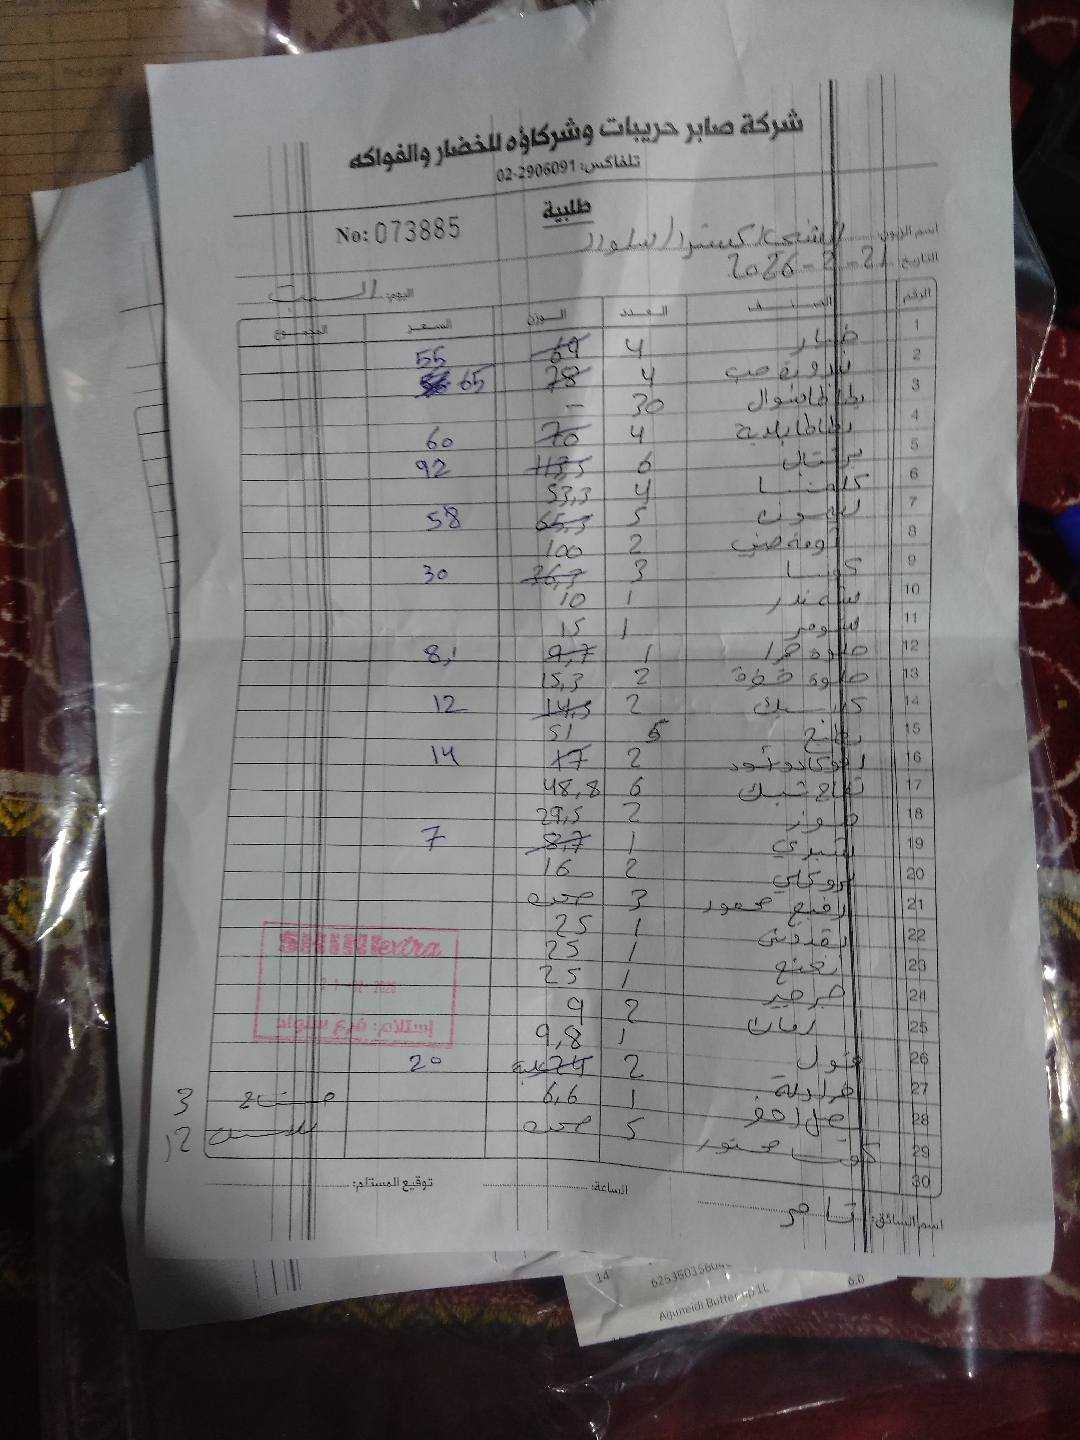 شركة صابر حريبات وشركاؤه للخضار والفواكه
تلفاكس: 02-2906091
طلبية
No: 073885
اسم الزبون: الشني اكسترا / سلواد
التاريخ: 21-2-2026
اليوم: السبت
الرقم الصنف العدد الوزن السعر المجموع
1 خيار 4 69 55
2 بندورة حب 4 78 65
3 بطاطا شوال 30 -
4 بطاطا بلدية 4 70 60
5 برتقال 6 113,5 92
6 كلمنتينا 4 53,3
7 ليمون 5 65,3 58
8 ثومة صيني 2 100
9 كوسا 3 36,7 30
10 شمندر 1 10
11 شومر 1 15
12 حلوة حمرا 1 9,7 8,1
13 حلوة خضرة 2 15,3
14 2 14,3 12
15 بطيخ 5 51
16 افوكادو 2 17 14
17 تفاح 6 48,8
18 موز 2 29,5
19 شيري 1 8,7 7
20 بروكلي 2 16
21 3 صحن
22 بقدونس 1 25
23 نعنع 1 25
24 جرجير 1 25
25 رمان 2 9
26 فول 1 9,8
27 فراولة 2 24 علبة 20
28 بصل اخضر 1 6,6
29 5 صحن
30
3
12
SHINI extra
2026
إستلام: فرع سلواد
اسم السائق: تامر
الساعة:
توقيع المستلم:
14
Aljuneidi Butter 1L
6.0